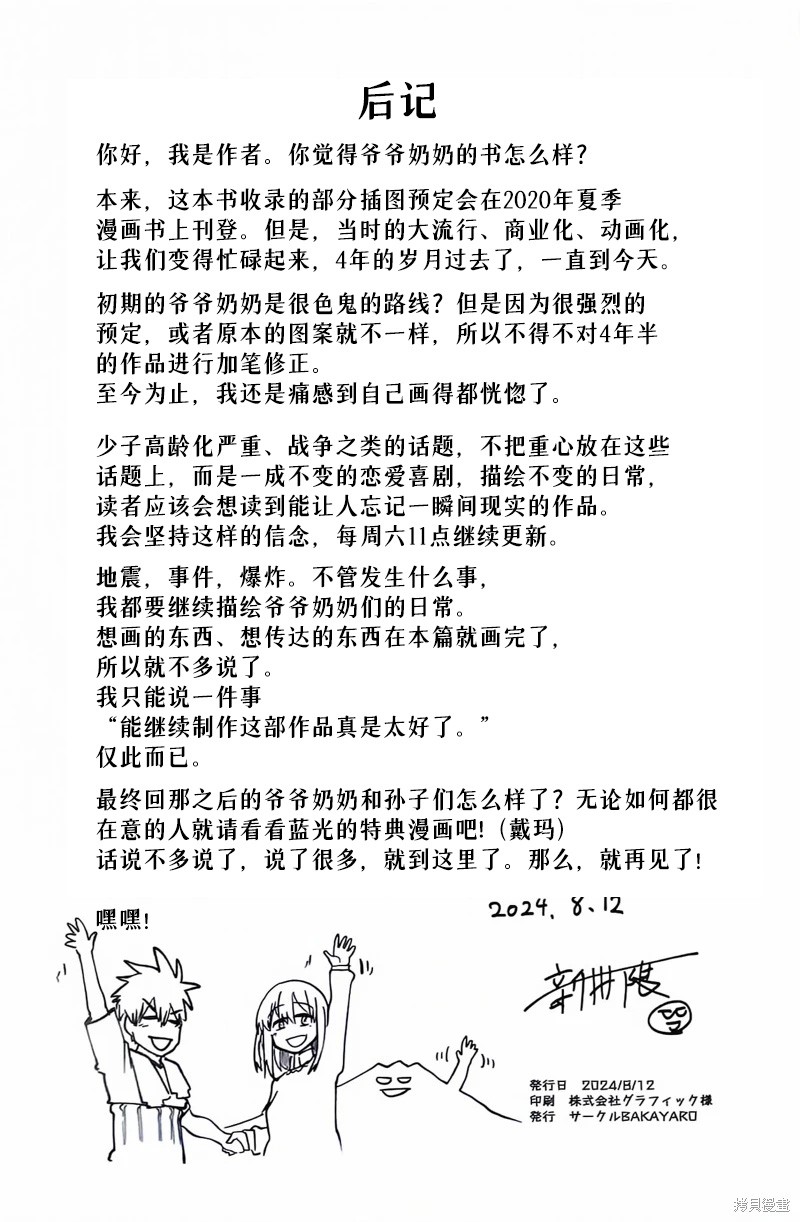 后记
你好，我是作者。你觉得爷爷奶奶的书怎么样？
本来，这本书收录的部分插图预定会在2020年夏季
漫画书上刊登。但是，当时的大流行、商业化、动画化，
让我们变得忙碌起来，4年的岁月过去了，一直到今天。
初期的爷爷奶奶是很色鬼的路线？但是因为很强烈的
预定，或者原本的图案就不一样，所以不得不对4年半
的作品进行加笔修正。
至今为止，我还是痛感到自己画得都恍惚了。
少子高龄化严重、战争之类的话题，不把重心放在这些
话题上，而是一成不变的恋爱喜剧，描绘不变的日常，
读者应该会想读到能让人忘记一瞬间现实的作品。
我会坚持这样的信念，每周六11点继续更新。
地震，事件，爆炸。不管发生什么事，
我都要继续描绘爷爷奶奶们的日常。
想画的东西、想传达的东西在本篇就画完了，
所以就不多说了。
我只能说一件事
“能继续制作这部作品真是太好了。”
仅此而已。
最终回那之后的爷爷奶奶和孙子们怎么样了？无论如何都很
在意的人就请看看蓝光的特典漫画吧!（戴玛）
话说不多说了，说了很多，就到这里了。那么，就再见了!
嘿嘿!
2024. 8. 12
新井隈
発行日 2024/8/12
印刷 株式会社グラフィック様
発行 サークルBAKAYARO
拷贝漫畫